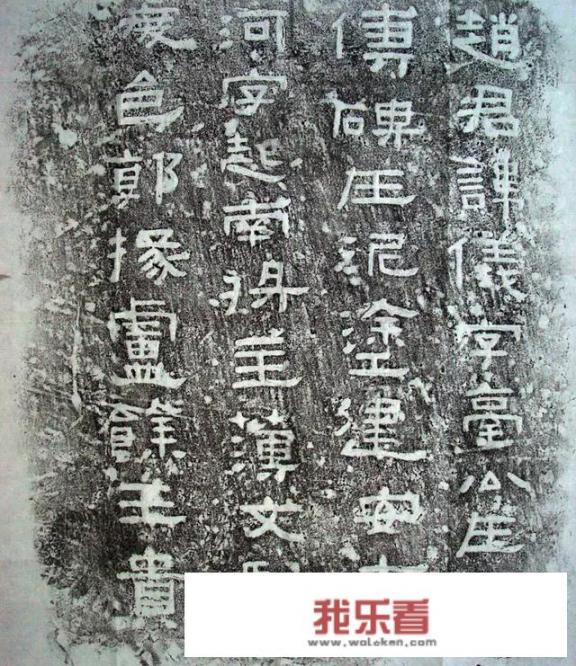 趙君諱儀字臺公在
傅碑在泥塗建安
河字起南將主薄文
郭掾盧餘王貴
我乐看
www.woleken.com